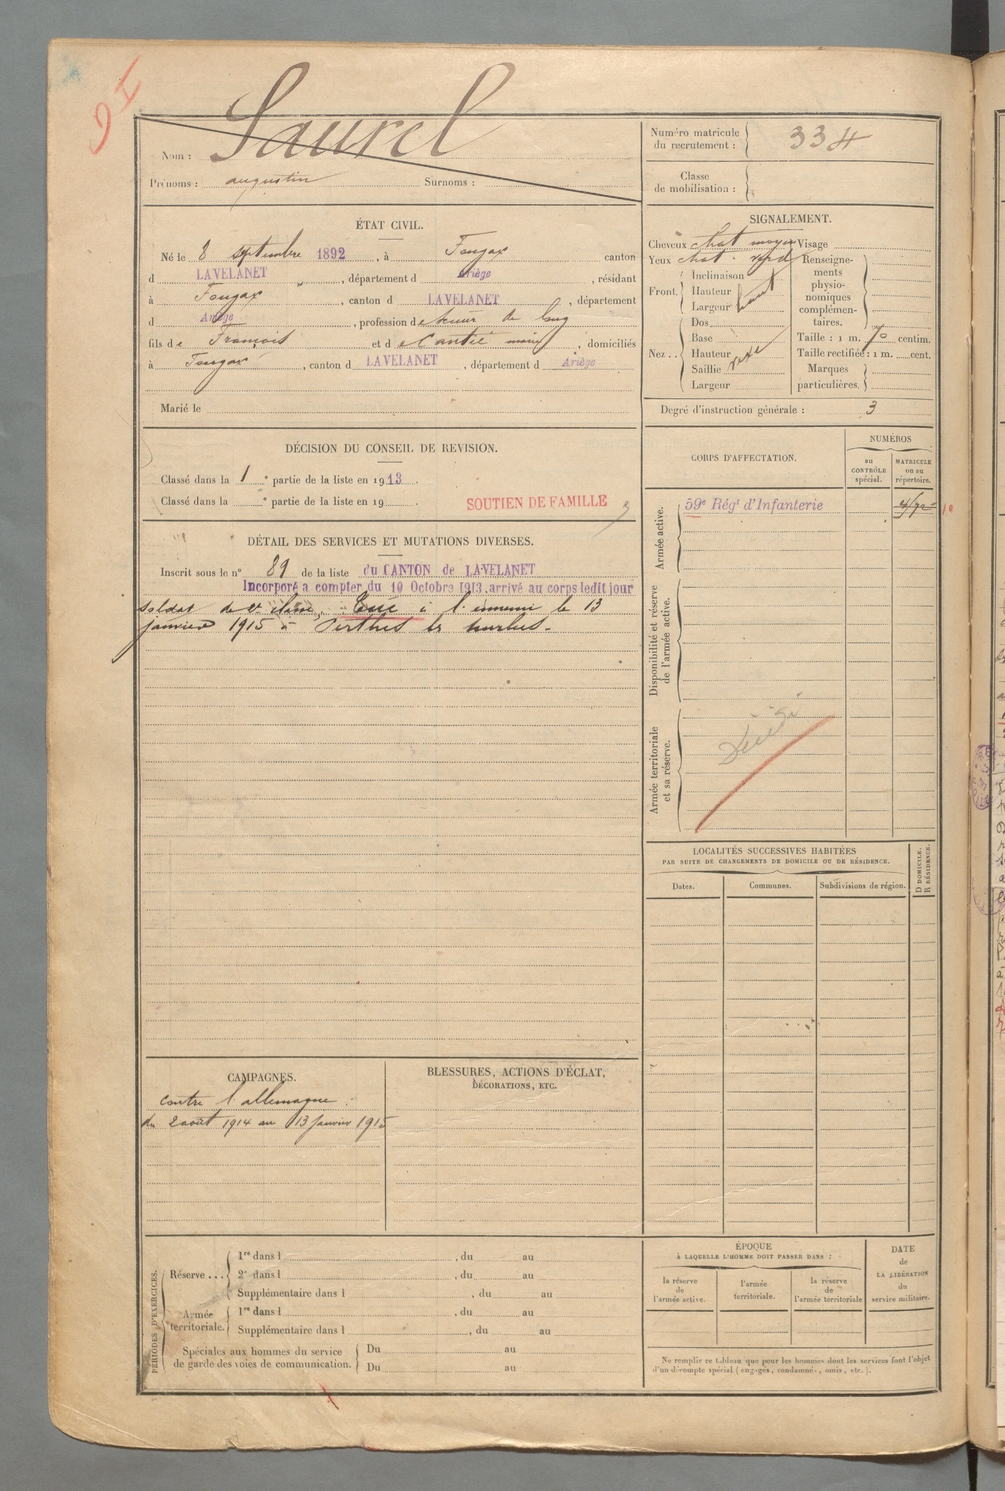 Nom : Saurel
Prénoms : augustin Surnoms :
Numéro matricule du recrutement : 334
Classe de mobilisation :
ÉTAT CIVIL.
Né le 8 septembre 1892, à Fougax canton
d LAVELANET, département d Ariège, résidant
à Fougax, canton d LAVELANET, département
d Ariège, profession de de
fils de François et de marie, domiciliés
à Fougax, canton d LAVELANET, département d Ariège
Marié le
SIGNALEMENT.
Cheveux chat moyen Visage
Yeux chat. verd
Front. Inclinaison
Hauteur haut
Largeur
Nez .. Dos
Base
Hauteur
Saillie
Largeur
Renseignements physionomiques complémentaires.
Taille : 1 m. 70 centim.
Taille rectifiée : 1 m. cent.
Marques particulières.
Degré d'instruction générale : 3
DÉCISION DU CONSEIL DE REVISION.
Classé dans la 1e partie de la liste en 1913.
Classé dans la e partie de la liste en 19 .
SOUTIEN DE FAMILLE
CORPS D'AFFECTATION.
NUMÉROS
au CONTRÔLE spécial.
MATRICULE ou au répertoire.
Armée active.
59e Régt d'Infanterie
Disponibilité et réserve de l'armée active.
Armée territoriale et sa réserve.
DÉTAIL DES SERVICES ET MUTATIONS DIVERSES.
Inscrit sous le n° 89 de la liste du CANTON de LAVELANET
Incorporé a compter du 10 Octobre 1913, arrivé au corps ledit jour
soldat de 2e classe, Tué à l'ennemi le 13
janvier 1915 à Perthes les hurlus.
LOCALITÉS SUCCESSIVES HABITÉES
PAR SUITE DE CHANGEMENTS DE DOMICILE OU DE RÉSIDENCE.
Dates. Communes. Subdivisions de région. D DOMICILE. R RÉSIDENCE.
CAMPAGNES.
contre l'allemagne :
du 2 août 1914 au 13 janvier 1915
BLESSURES, ACTIONS D'ÉCLAT,
DÉCORATIONS, ETC.
PÉRIODES D'EXERCICES.
Réserve ... 1re dans l , du au
2e dans l , du au
Supplémentaire dans l , du au
Armée territoriale. 1re dans l , du au
Supplémentaire dans l , du au
Spéciales aux hommes du service de garde des voies de communication. Du au
Du au
ÉPOQUE
À LAQUELLE L'HOMME DOIT PASSER DANS :
la réserve de l'armée active.
l'armée territoriale.
la réserve de l'armée territoriale
DATE de LA LIBÉRATION du service militaire.
Ne remplir ce tableau que pour les hommes dont les services font l'objet
d'un décompte spécial ( engagés, condamnés, omis, etc. ).